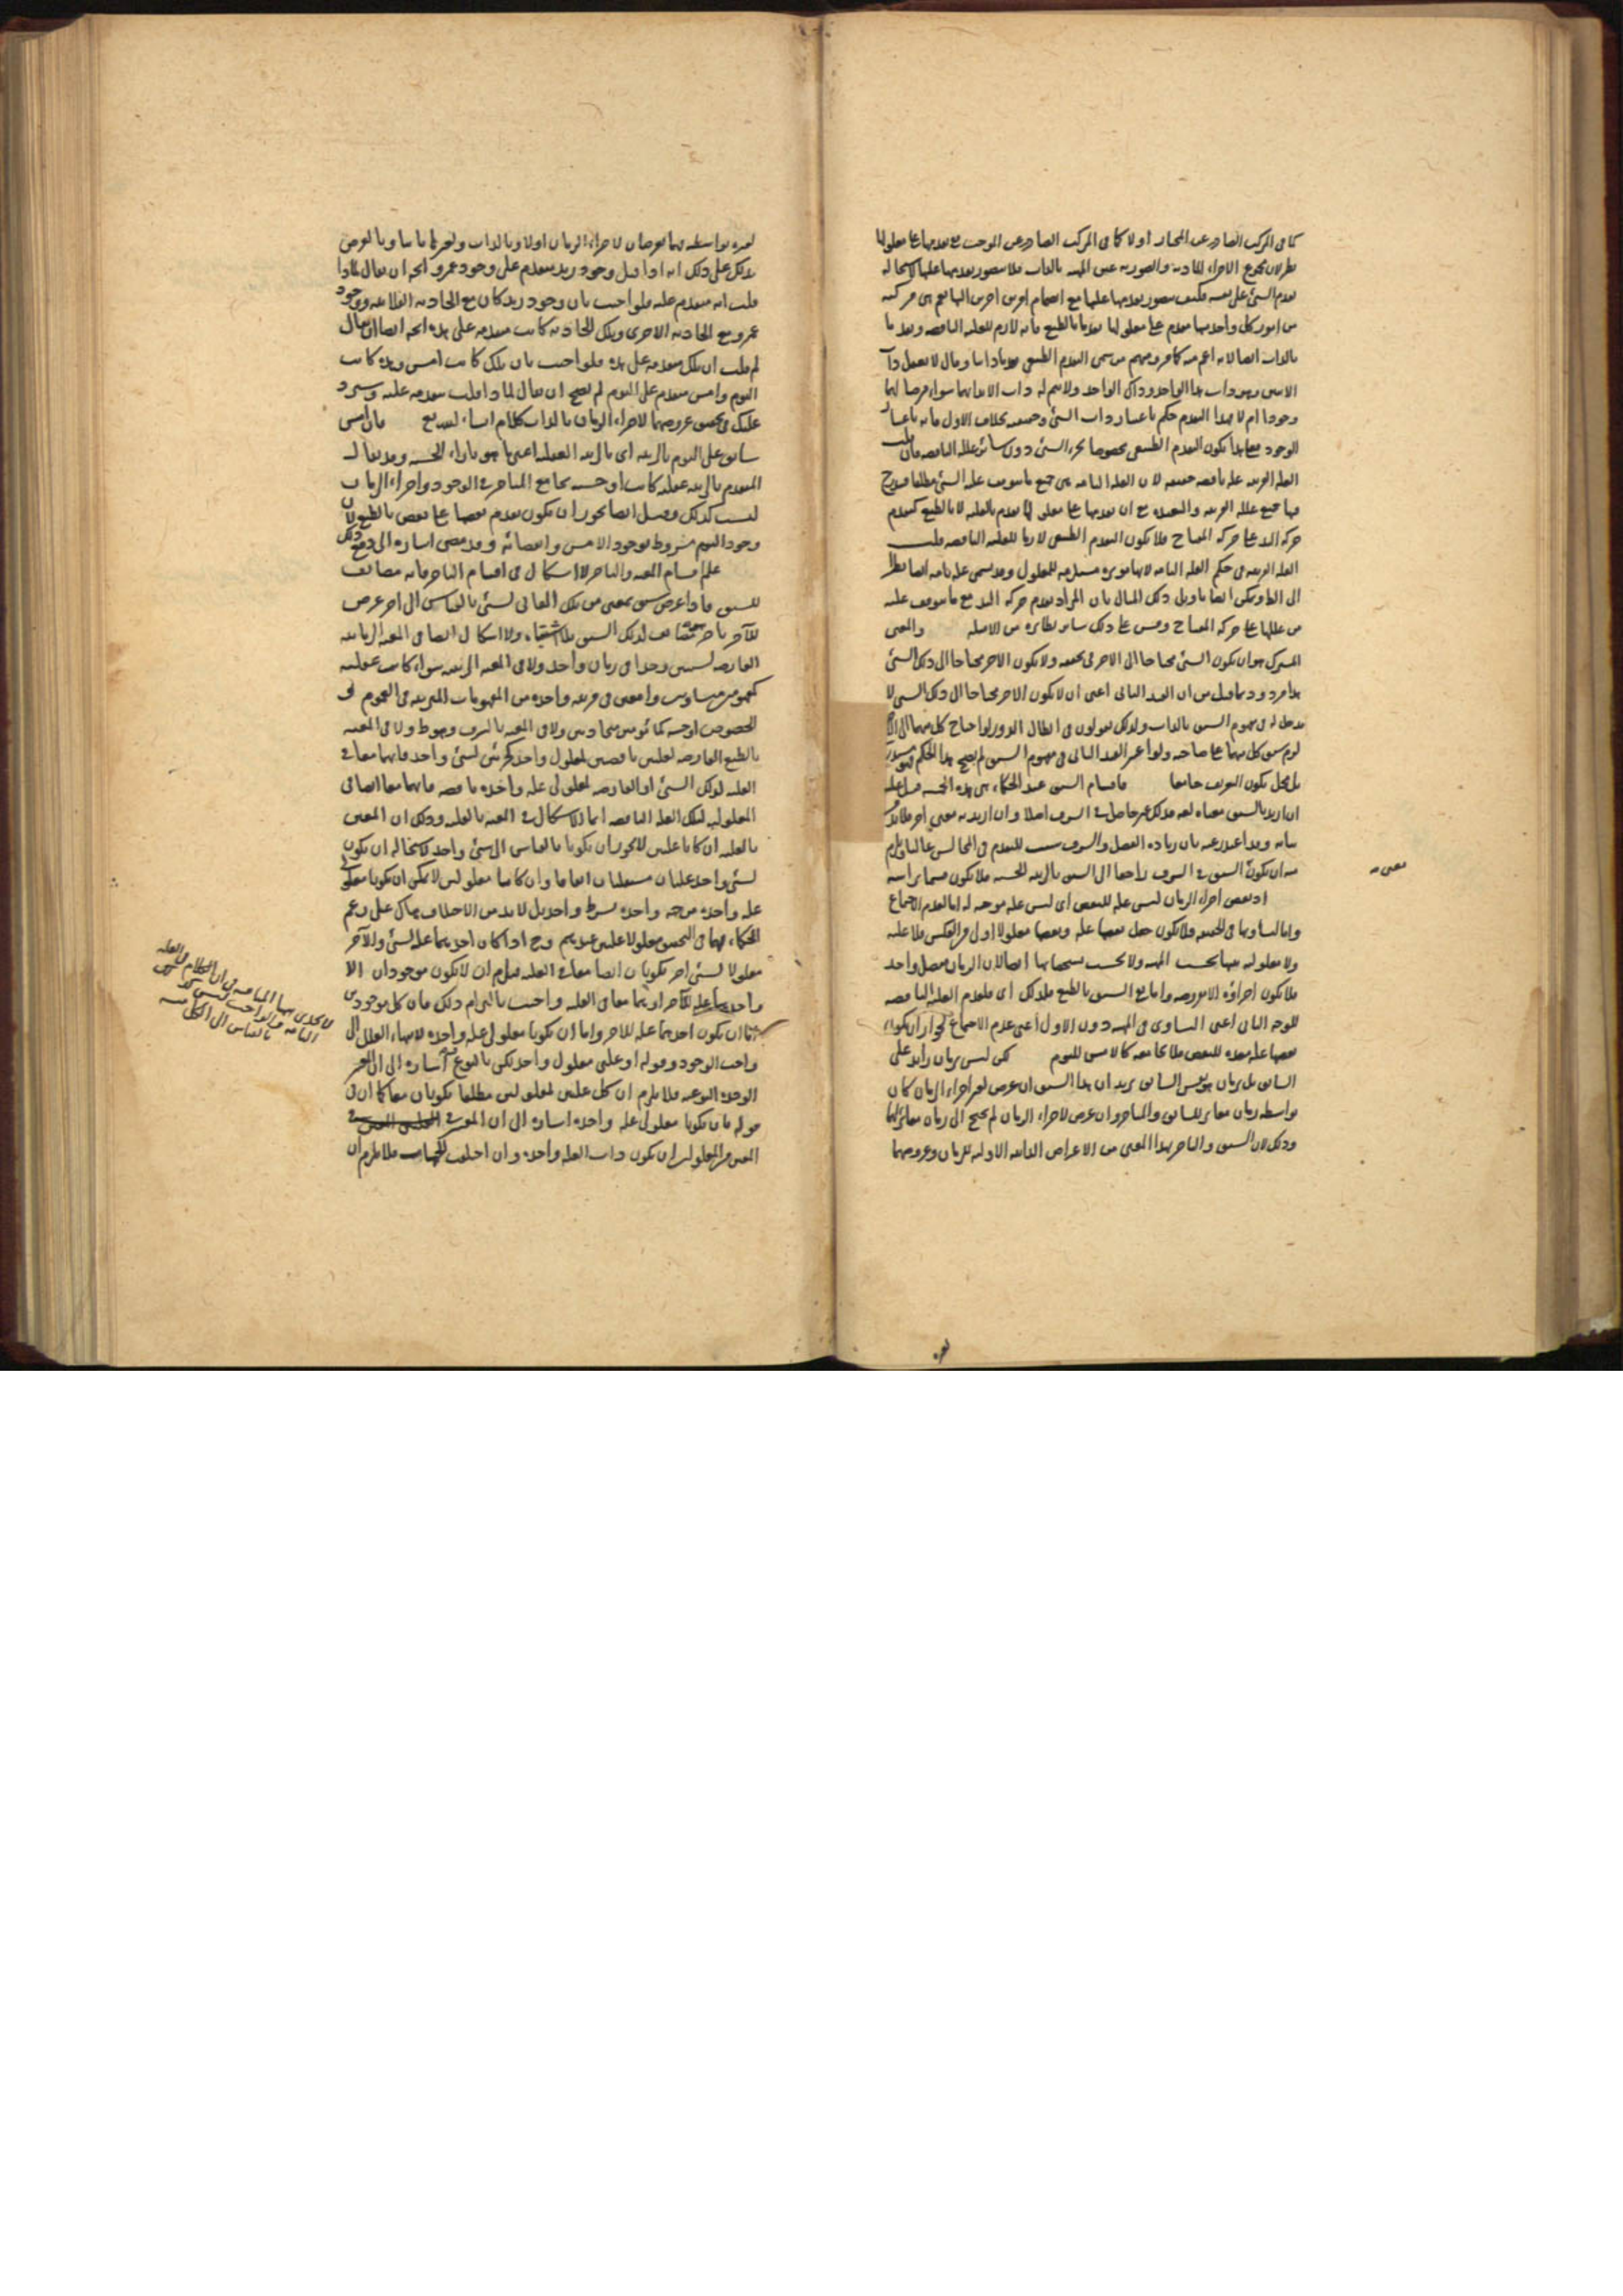 كما في المركب الصادر عن المختار اولا كما في المركب الصادر عن الموجب مع تقدمها على معلولها
نظر لان مجموع الاجزاء المادية والصورية عين المهية بالذات فلا يتصور تقدمها عليها لاستحالة
تقدم الشئ على نفسه فكيف يتصور تقدمها عليها مع انضمام امرين اخرين اليها فهي مركبة
من امور كل واحد منها مقدم على معلولها تقدما بالطبع فانه لازم للعلة الناقصة
بالذات ايضا لانه اعم منه كما عرفت ومنهم من سمى التقدم الطبعي تقدما ذاتيا وقال لا يعقل ذات
الاثنين وهو ذات هذا الواحد وذاك الواحد ولا سم له ذات الا بذاتهما سواء فرضا لهما
وجودا ام لا فهذا التقدم حكم باعتبار ذات الشئ وحقيقته بخلاف الاول فانه باعتبار
الوجود فعلى هذا يكون التقدم الطبعي مخصوصا بجزء الشئ دون سائر علله الناقصة فان قلت
العلة القريبة علة ناقصة حقيقة لان العلة التامة هي جميع ما يتوقف عليه الشئ مطلقا فيندرج
فيها جميع علله القريبة والبعيدة مع ان تقدمها على معلولها تقدم بالعلية لا بالطبع كتقدم
حركة اليد على حركة المفتاح فلا يكون التقدم الطبعي لازما للعلة الناقصة قلت
العلة القريبة في حكم العلة التامة لانها مؤثرة مستلزمة للمعلول وقد يسمى علة تامة ايضا نظرا
الى الظاهر ويمكن ايضا تاويل ذلك المثال بان المراد تقدم حركة اليد مع ما يتوقف عليه
من عللها على حركة المفتاح وقس على ذلك سائر نظائره من الامثلة والمعنى
المشترك هو ان يكون الشئ محتاجا الى الاخر في تحققه ولا يكون الاخر محتاجا الى ذلك الشئ
هذا مردود بما قيل من ان القيد الثاني اعني ان لا يكون الاخر محتاجا الى ذلك الشئ لا
مدخل له في مفهوم السبق بالذات ولذلك يقولون في ابطال الدور لو احتاج كل منهما الى الاخر
لزم سبق كل منهما على صاحبه ولو اعتبر القيد الثاني في مفهوم السبق لم يصح هذا الحكم
بل يخل بكون التعريف جامعا فاقسام السبق عند الحكماء هي هذه الخمسة قيل عليه
ان اريد بالسبق معناه لغة فذلك غير حاصل في الشرف اصلا وان اريد به معنى اخر فلا بد من
بيانه وقد اعتذر عنه بان زيادة الفضل والشرف سبب للتقدم في المجالس غالبا ويلزم
منه ان يكون السبق في الشرف راجعا الى السبق بالرتبة الحسية فلا يكون قسما براسه
اذ بعض اجزاء الزمان ليس علة للبعض اي ليس علة موجبة له اما لعدم الاجتماع
واما لتساويها في الحقيقة فلا يكون جعل بعضها علة وبعضها معلولا اولى من العكس فلا علية
ولا معلولية بينها بحسب المهية ولا بحسب تشخصاتها ايضا لان الزمان متصل واحد
فلا يكون اجزاؤه الا مفروضة واما مع السبق بالطبع فلذلك اي فلعدم العلة الناقصة
للوجه الثاني اعني التساوي في المهية دون الاول اعني عدم الاجتماع لجواز ان يكون
بعضها علة معدة للبعض فلا يجامعه كالامس لليوم لكن ليس بزمان زايد على
السابق بل بزمان هو نفس السابق يريد ان هذا السبق ان عرض لغير اجزاء الزمان كان
بواسطة زمان مغاير للسابق والمتاخر وان عرض لاجزاء الزمان لم يحتج الى زمان مغاير لها
وذلك لان السبق والتاخر بهذا المعنى من الاعراض الذاتية الاولية للزمان وعروضهما
معنى صح
لغيره
لغيره بواسطة فهما يعرضان لاجزاء الزمان اولا وبالذات ولغيرها ثانيا وبالعرض
يدلك على ذلك انه اذا قيل وجود زيد متقدم على وجود عمرو اتجه ان يقال لماذا
قلت انه متقدم عليه فلو اجيب بان وجود زيد كان مع الحادثة الفلانية ووجود
عمرو مع الحادثة الاخرى وتلك الحادثة كانت متقدمة على هذه اتجه ايضا ان يقال
لم قلت ان تلك متقدمة على هذه فلو اجيب بان تلك كانت امس وهذه كانت
اليوم وامس متقدم على اليوم لم يصح ان يقال لماذا قلت متقدمة عليه وسيرد
عليك في تحقيق عروضهما لاجزاء الزمان بالذات كلام ان شاء الله تع فان امس
سابق على اليوم بالرتبة اي بالرتبة العقلية اعني ما هو بازاء الحسية وقد يقال
المتقدم بالرتبة عقلية كانت او حسية يجامع المتاخر في الوجود واجزاء الزمان
ليست كذلك وقيل ايضا يجوز ان يكون تقدم بعضها على بعض بالطبع لان
وجود اليوم مشروط بوجود الامس وانقضائه وقد مضى اشارة الى دفع ذلك
علم اقسام المعية والتاخر لا اشكال في اقسام التاخر فانه مضايف
للسبق فاذا عرض سبق بمعنى من تلك المعاني لشئ بالقياس الى اخر عرض
للاخر تاخر مضايف لذلك السبق بلا اشتباه ولا اشكال ايضا في المعية الزمانية
العارضة لشيئين وجدا في زمان واحد ولا في المعية الرتبية سواء كانت عقلية
كمفهومين متساويين واقعين في مرتبة واحدة من المفهومات المترتبة في العموم و
الخصوص او حسية كمأمومين متحاذيين ولا في المعية بالشرف وهو ظ ولا في المعية
بالطبع العارضة لعلتين ناقصتين لمعلول واحد كجزئين لشئ واحد فانهما معا في
العلية لذلك الشئ او العارضة لمعلولي علة واحدة ناقصة فانهما معا ايضا في
المعلولية لتلك العلة الناقصة انما الاشكال في المعية بالعلية وذلك ان المعين
بالعلية ان كانا علتين لا يجوز ان يكونا بالقياس الى شئ واحد لاستحالة ان يكون
لشئ واحد علتان مستقلتان اتفاقا وان كانا معلولين لا يمكن ان يكونا معلولي
علة واحدة موجبة واحدة بسيط واحد بل لا بد من الاختلاف هناك على زعم
الحكماء فهما في التحقيق معلولا علتين عندهم وح اذا كان احدهما علة لشئ والاخر
معلولا لشئ اخر يكونان ايضا معا في العلية فيلزم ان لا يكون موجودان الا
واحدهما علة للاخر او هما معا في العلية واجيب بالتزام ذلك فان كل موجودين
اما ان يكون احدهما علة للاخر واما ان يكونا معلولي علة واحدة لانتهاء العلل الى
واجب الوجود وقوله او علتي معلول واحد لكن بالنوع اشارة الى ان المعتبر
الوحدة النوعية فلا يلزم ان كل علتين لمعلولين مطلقا يكونان معا كما ان في
قوله بان يكونا معلولي علة واحدة اشارة الى ان المعتبر في
المعين من المعلولين ان يكون ذات العلة واحدة وان اختلفت الجهات فلا يلزم ان